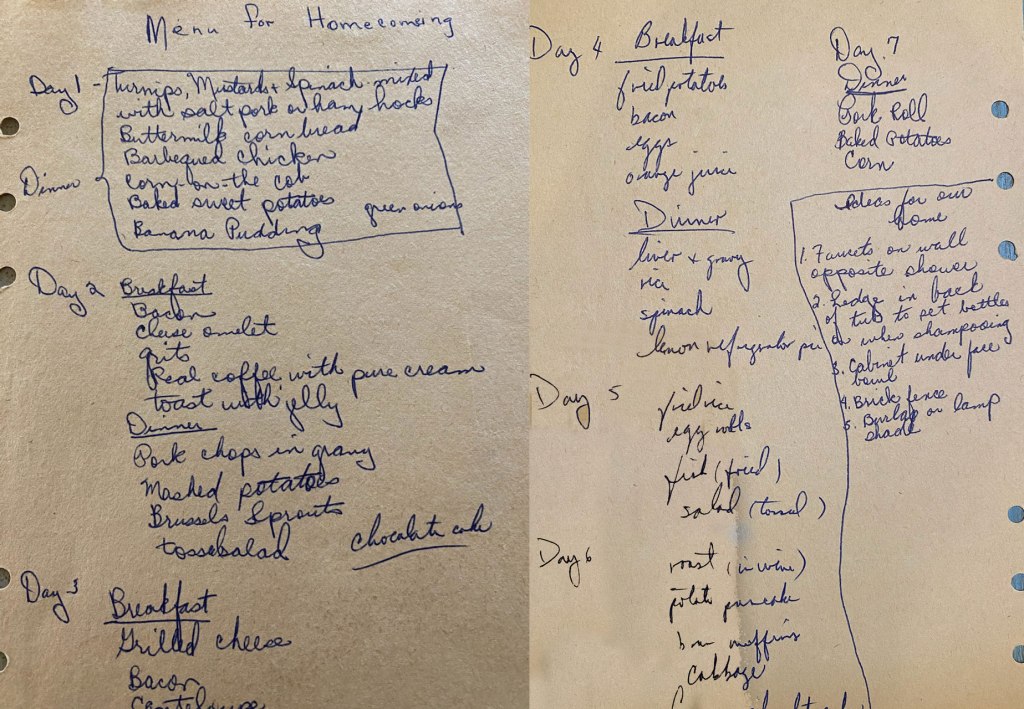 Menu for Homecomsing
Day 1 - Turnips, Mustards + Spinach mixed
with salt pork or hany hocks
Buttermilk corn bread
Barbequed chicken
Dinner
corn-on-the cob
Baked sweet potatoes
green onions
Banana Pudding
Day 2 Breakfast
Bacon
cheese omelet
grits
Real coffee with pure cream
toast with jelly
Dinner
Pork chops in gravy
Mashed potatoes
Brussels Sprouts
tossebalad
chocolate cake
Day 3
Breakfast
Grilled cheese
Bacon
Canteloupe
Day 4 Breakfast
fried potatoes
bacon
eggs
orange juice
Dinner
liver + gravy
rice
spinach
lemon refrigrator pie
Day 5 fried rice
egg rolls
fish (fried)
salad (tossed)
Day 6 roast (in wine)
potato pancake
bran muffins
Cabbage
Day. 7
Dinner
Pork Roll
Baked Potatoes
Corn
Ideas for our
home
1. Faucets on wall
opposite shower
2. Ledge in back
of tub to set bottles
on when shampooing
3. Cabinet under face
bowl
4. Brick fence
5. Burlap on lamp
shade